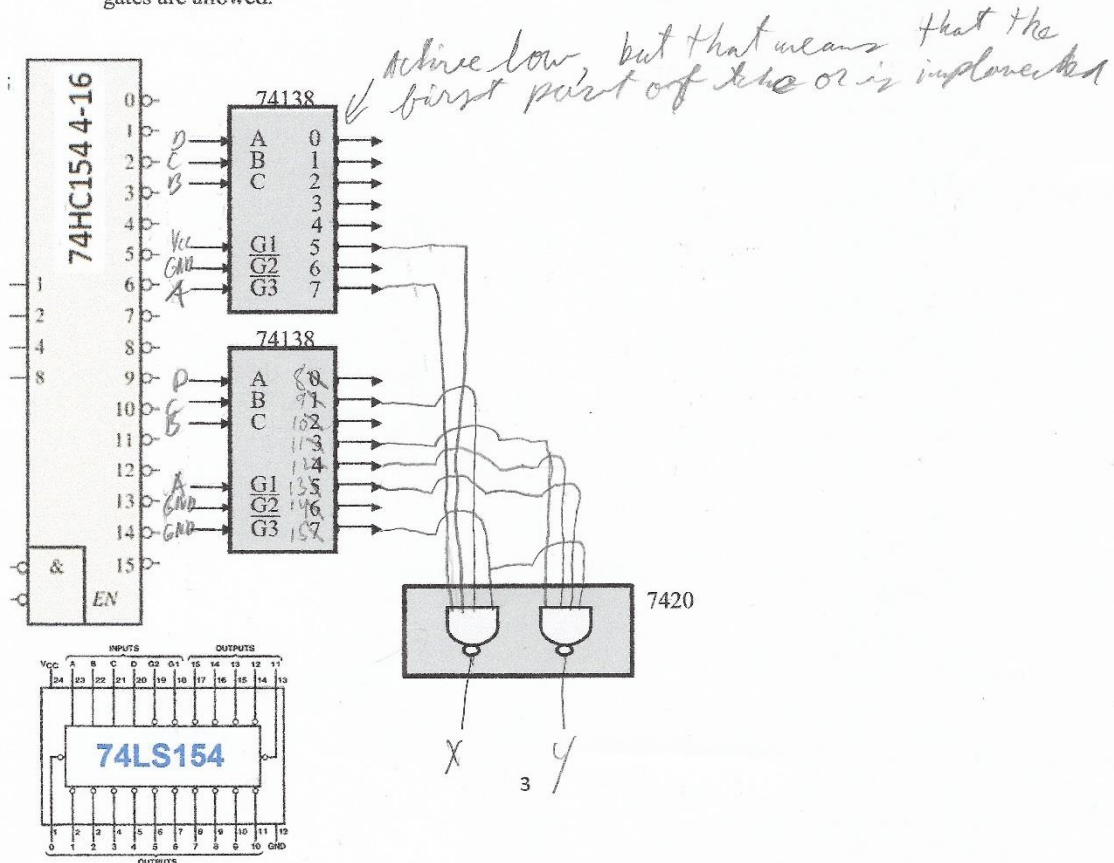 gates are allowed.
Active low, but that means that the
first part of the or is implemented
74HC154 4-16
0
1
2
3
4
5
6
7
8
9
10
11
12
13
14
15
1
2
4
8
&
EN
74138
D A 0
C B 1
B C 2
3
4
Vcc G1 5
GND G2 6
A G3 7
74138
D A 8 0
C B 9 1
B C 10 2
11 3
12 4
A G1 13 5
GND G2 14 6
GND G3 15 7
7420
X Y
3
INPUTS OUTPUTS
VCC A B C D G2 G1 15 14 13 12 11
24 23 22 21 20 19 18 17 16 15 14 13
74LS154
1 2 3 4 5 6 7 8 9 10 11 12
0 1 2 3 4 5 6 7 8 9 10 GND
OUTPUTS